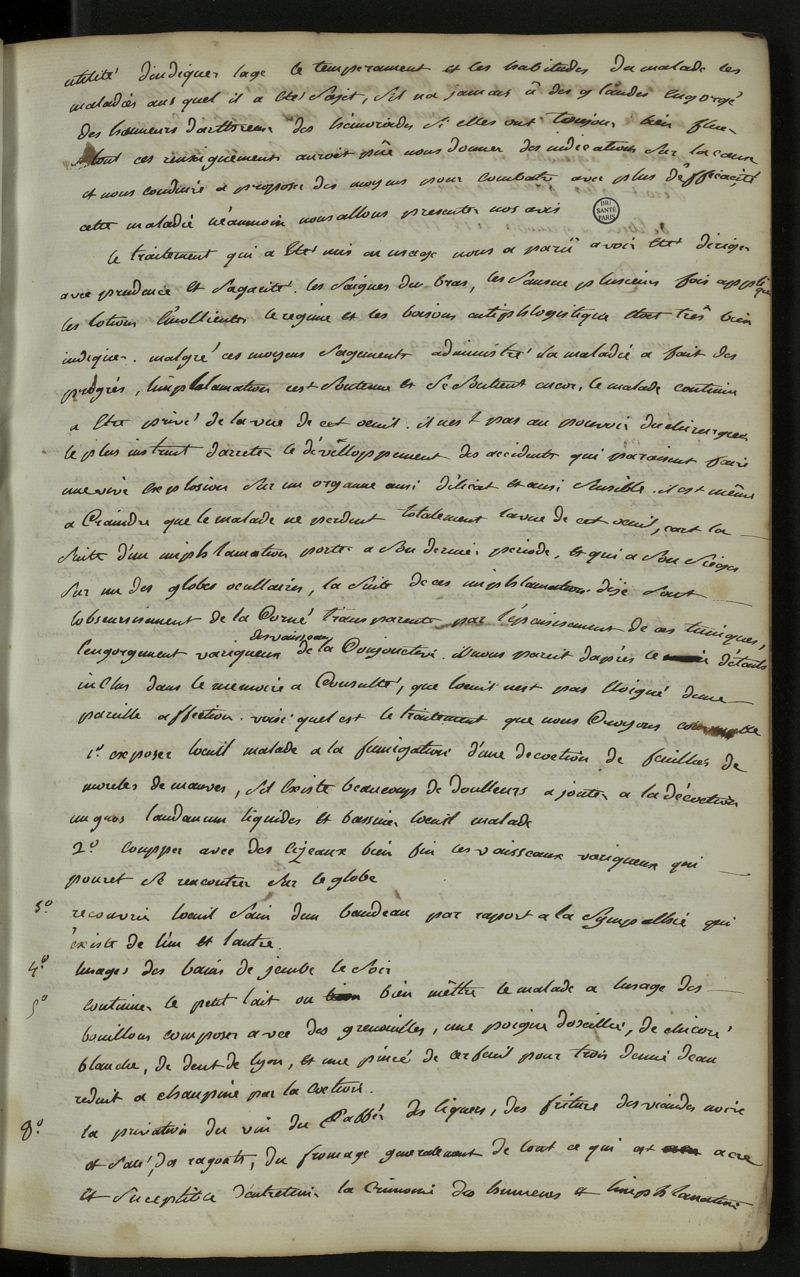 utilité d'indiquer lage le temperament et les habitudes du malade les
maladies aus quel il a eté sujet, sil na jamais û des glandes engorgé
des humeurs dartreux des hémoroides si elles ont toujour bien flue
tout ces rensignements auroit pue nous donner des indications sur la cause
et nous conduire a proposer des moyens pour combatre avec plus d'efficacité
cette maladie néanmoin nous allons presenter nos avis
BIU SANTÉ PARIS
le traitement qui a eté mis en usage nous a parû avoir eté diriger
avec prudence et sagacité. les saignes du bras, les sansue plusieurs fois appliqué
les lotions émollientes le regime et les boisons antiphlogistique etoit trés bien
indiquer. malgré ces moyens sagements administré la maladie a fait des
progrés, linphlamation cest soutenue et se soutient encor, le malade continue
a etre privé de la vue de cet oeuil. il nest pas au pouvoir du chirurgien
le plus instruit d'arreter le dévélloppement des accidents qui paraisent faire
une vive explosion sur un organne ausi délicat et ausi sensible. il est même
a craindre que le malade ne perdent totalement la vue de cet oeuil, cart la
suite d'un inphlamation porter a son dernier periode, et qui a son siéges
sur un des globes ocullaires, la suite de ces inphlamations dije sont
lobscursisement de la Corné transparente par l'épaisisement de ces tuniques,
des vaisseaux
l'engorgment variqueux de la Conjonctive. il nous parait daprés le détaills
inclus dans le memoire a Consulté, que loeuil nest pas éloigné dune
pareille affection. voisi quel est le traitement que nous Croyons convenable
1º exposer loeuil malade a la fumigation d'une decoction de feuilles de
moules de mauves, sil existe beaucoup de doulleurs ajouter a la décoction
un gros laudanum liquides et bassiner loeuil malade
2º coupper avec des cizeaux bien fin les vaisseaux variqueux qui
pouret se rencontrer sur le globe
3º recouvrir loeuil sain dun bandeau par raport a la sympathie qui
éxiste de l'un et lautre.
4º lusages des bains de jambe le soir
5º continuer le petit lait ou bien mêttre le malade a lusage des
bouillons composer avec des grenouilles, une poigné doseille, de chicoré
blanche, de dent de lyon, et une pincé de cerfeuil pour trois demie deau
reduit a chaupine par la coction.
8º la privation du vin du Caffé des liqueurs, des friture des viandes noire
et salé, des ragouts, du fromage generalement de tout ce qui est acre
et suceptible d'entretenir la Crimonie des humeurs et linphlamation